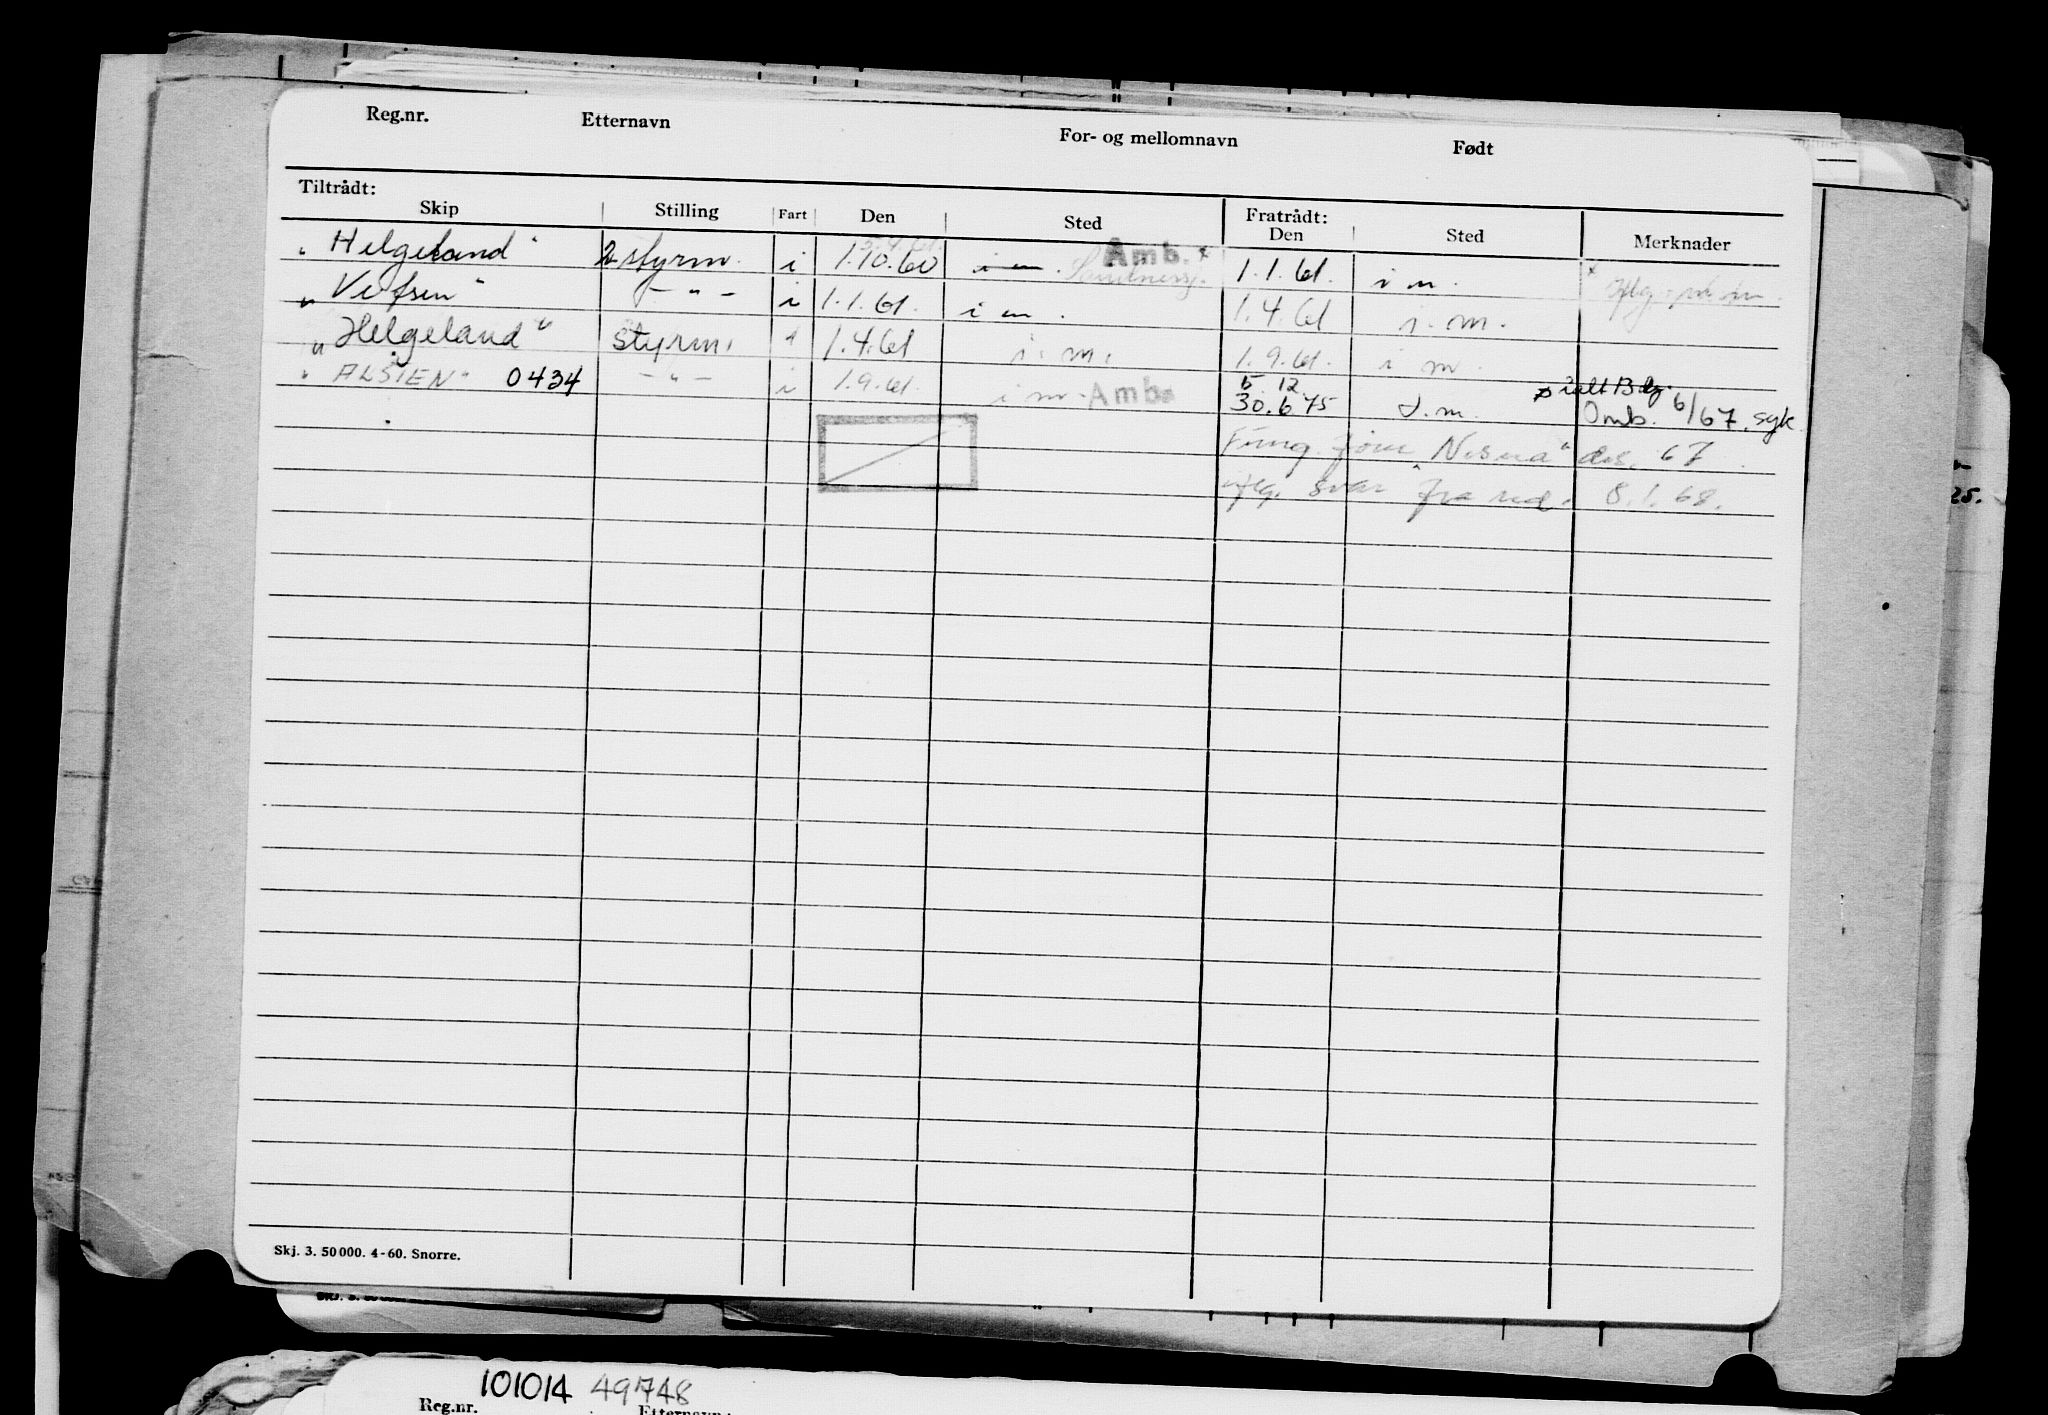 Reg.nr. Etternavn For- og mellomnavn Født
Tiltrådt: Fratrådt:
Skip Stilling Fart Den Sted Den Sted Merknader
"Helgeland" 2 styrm. i 1.10.60 i m. Amb. x 1.1.61. i m.
"Vefsen" - " - i 1.1.61. i m. 1.4.61 i. m.
"Helgeland" styrm. i 1.4.61 i. m. 1.9.61. i m.
"ALSTEN" 0434 - " - i 1.9.61. i m. Amb. 30.6.75 i. m. Omb. 6/67. syk
5. 12
des. 67
svar fra red. 8.1.68.
Skj. 3. 50 000. 4-60. Snorre.
25.
101014 49748
Reg.nr. Etternavn